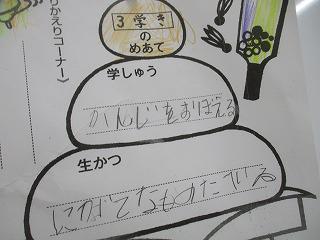 りかえりコーナー》
3学き
の
めあて
学しゅう
かんじをおぼえる
生かつ
にがてなものたべる